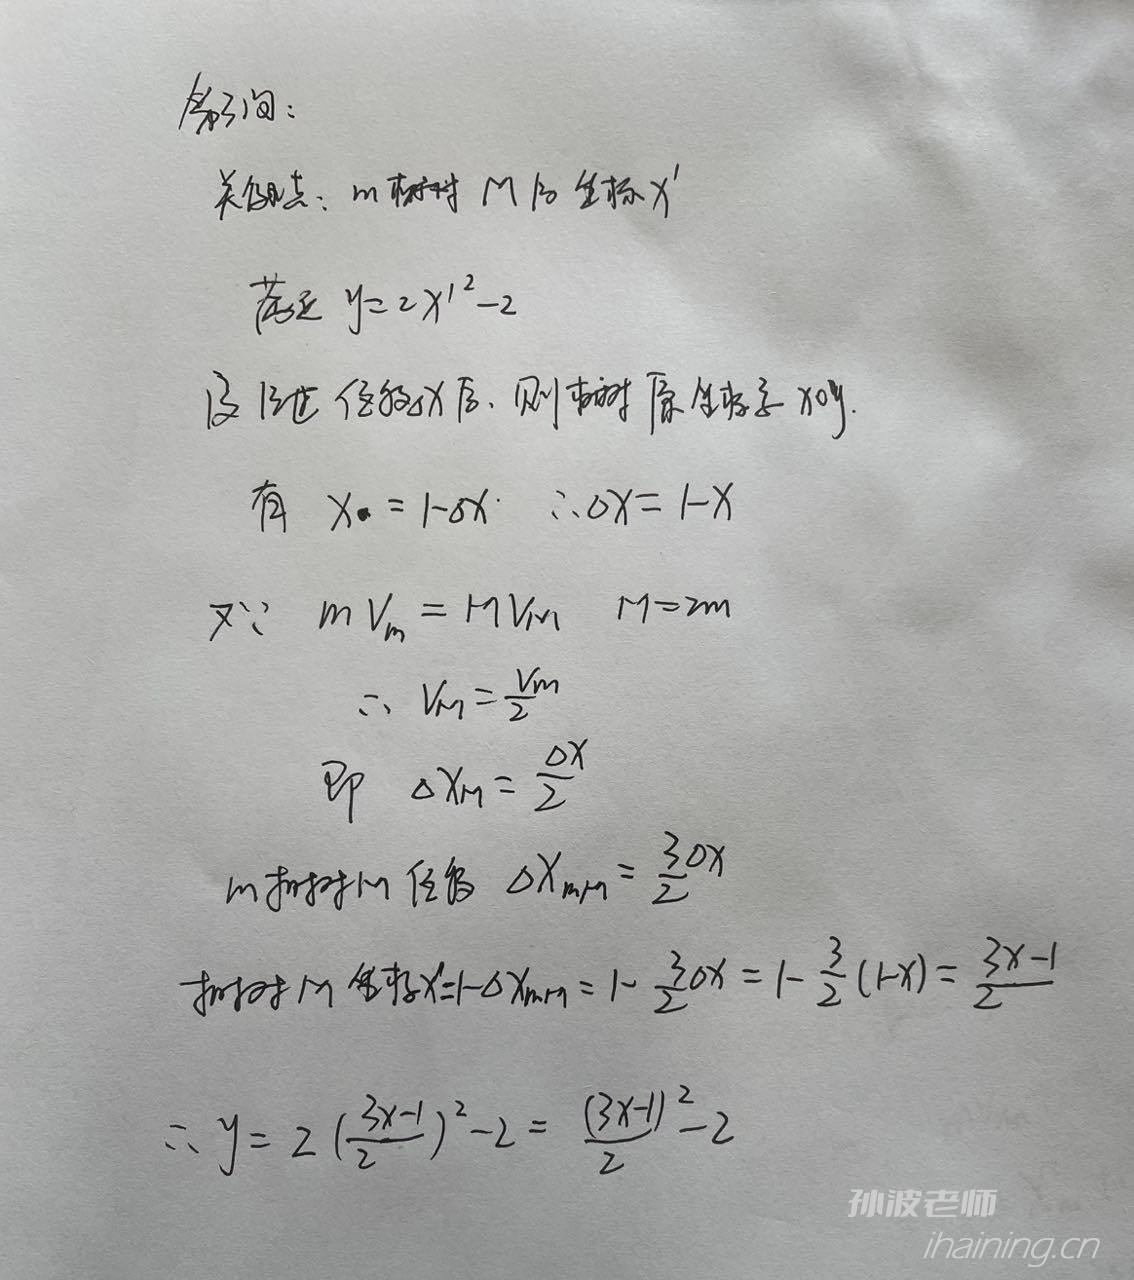 第3问：
关键点：m相对M的坐标x'
满足 y=2x'²-2
设m位移△x后，则相对原坐标系xoy.
有 x=1-△x ∴△x=1-x
又∵ mVₘ=MV_M M=2m
∴ V_M=Vₘ/2
即 △x_M=△x/2
m相对M位移 △x_mM=3/2△x
相对M坐标x'=1-△x_mM=1-3/2△x=1-3/2(1-x)=(3x-1)/2
∴ y=2((3x-1)/2)²-2=(3x-1)²/2-2
孙波老师
ihaining.cn